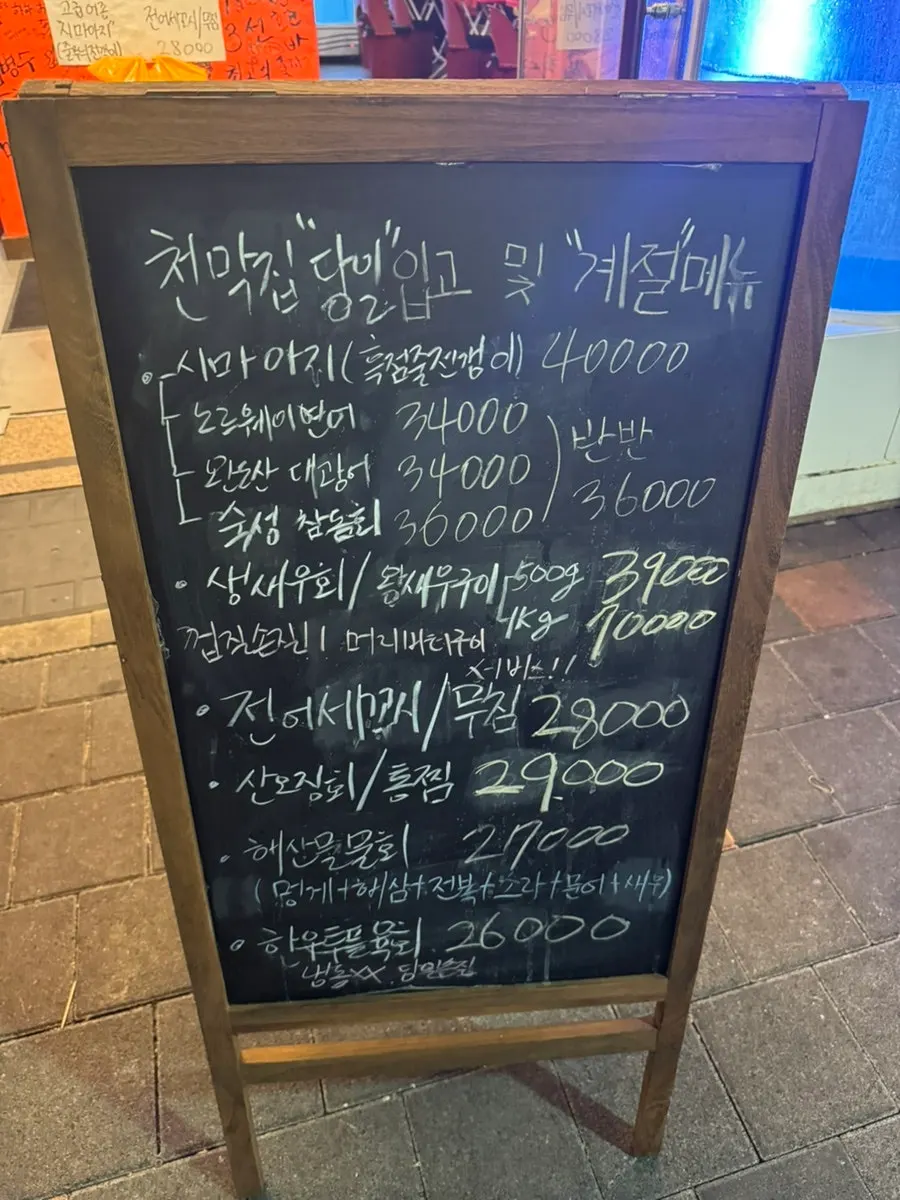 고급어종
시마아지
(흑점줄전갱이)
전어세꼬시/무침
28000
천막집 "당일"입고 및 "계절"메뉴
시마아지(흑점줄전갱이) 40000
노르웨이연어 34000
완도산 대광어 34000
숙성 참돔회 36000
반반
36000
생새우회/왕새우구이 500g 39000
1kg 70000
껍질손질! 머리버터구이
서비스!!
전어세꼬시/무침 28000
산오징회/통찜 29000
해산물물회 27000
(멍게+해삼+전복+소라+문어+새우)
한우투플육회 26000
냉동XX 당일손질